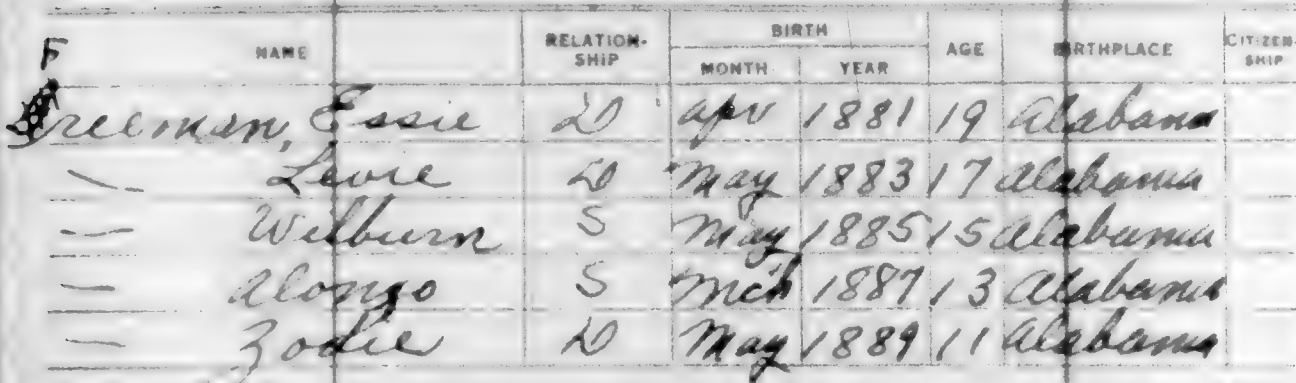 NAME RELATION-SHIP BIRTH MONTH YEAR AGE BIRTHPLACE CITIZEN-SHIP
F
Freeman, Essie D Apr 1881 19 Alabama
— Levie D May 1883 17 Alabama
— Wilburn S May 1885 15 Alabama
— Alonzo S Mch 1887 13 Alabama
— Zodie D May 1889 11 Alabama